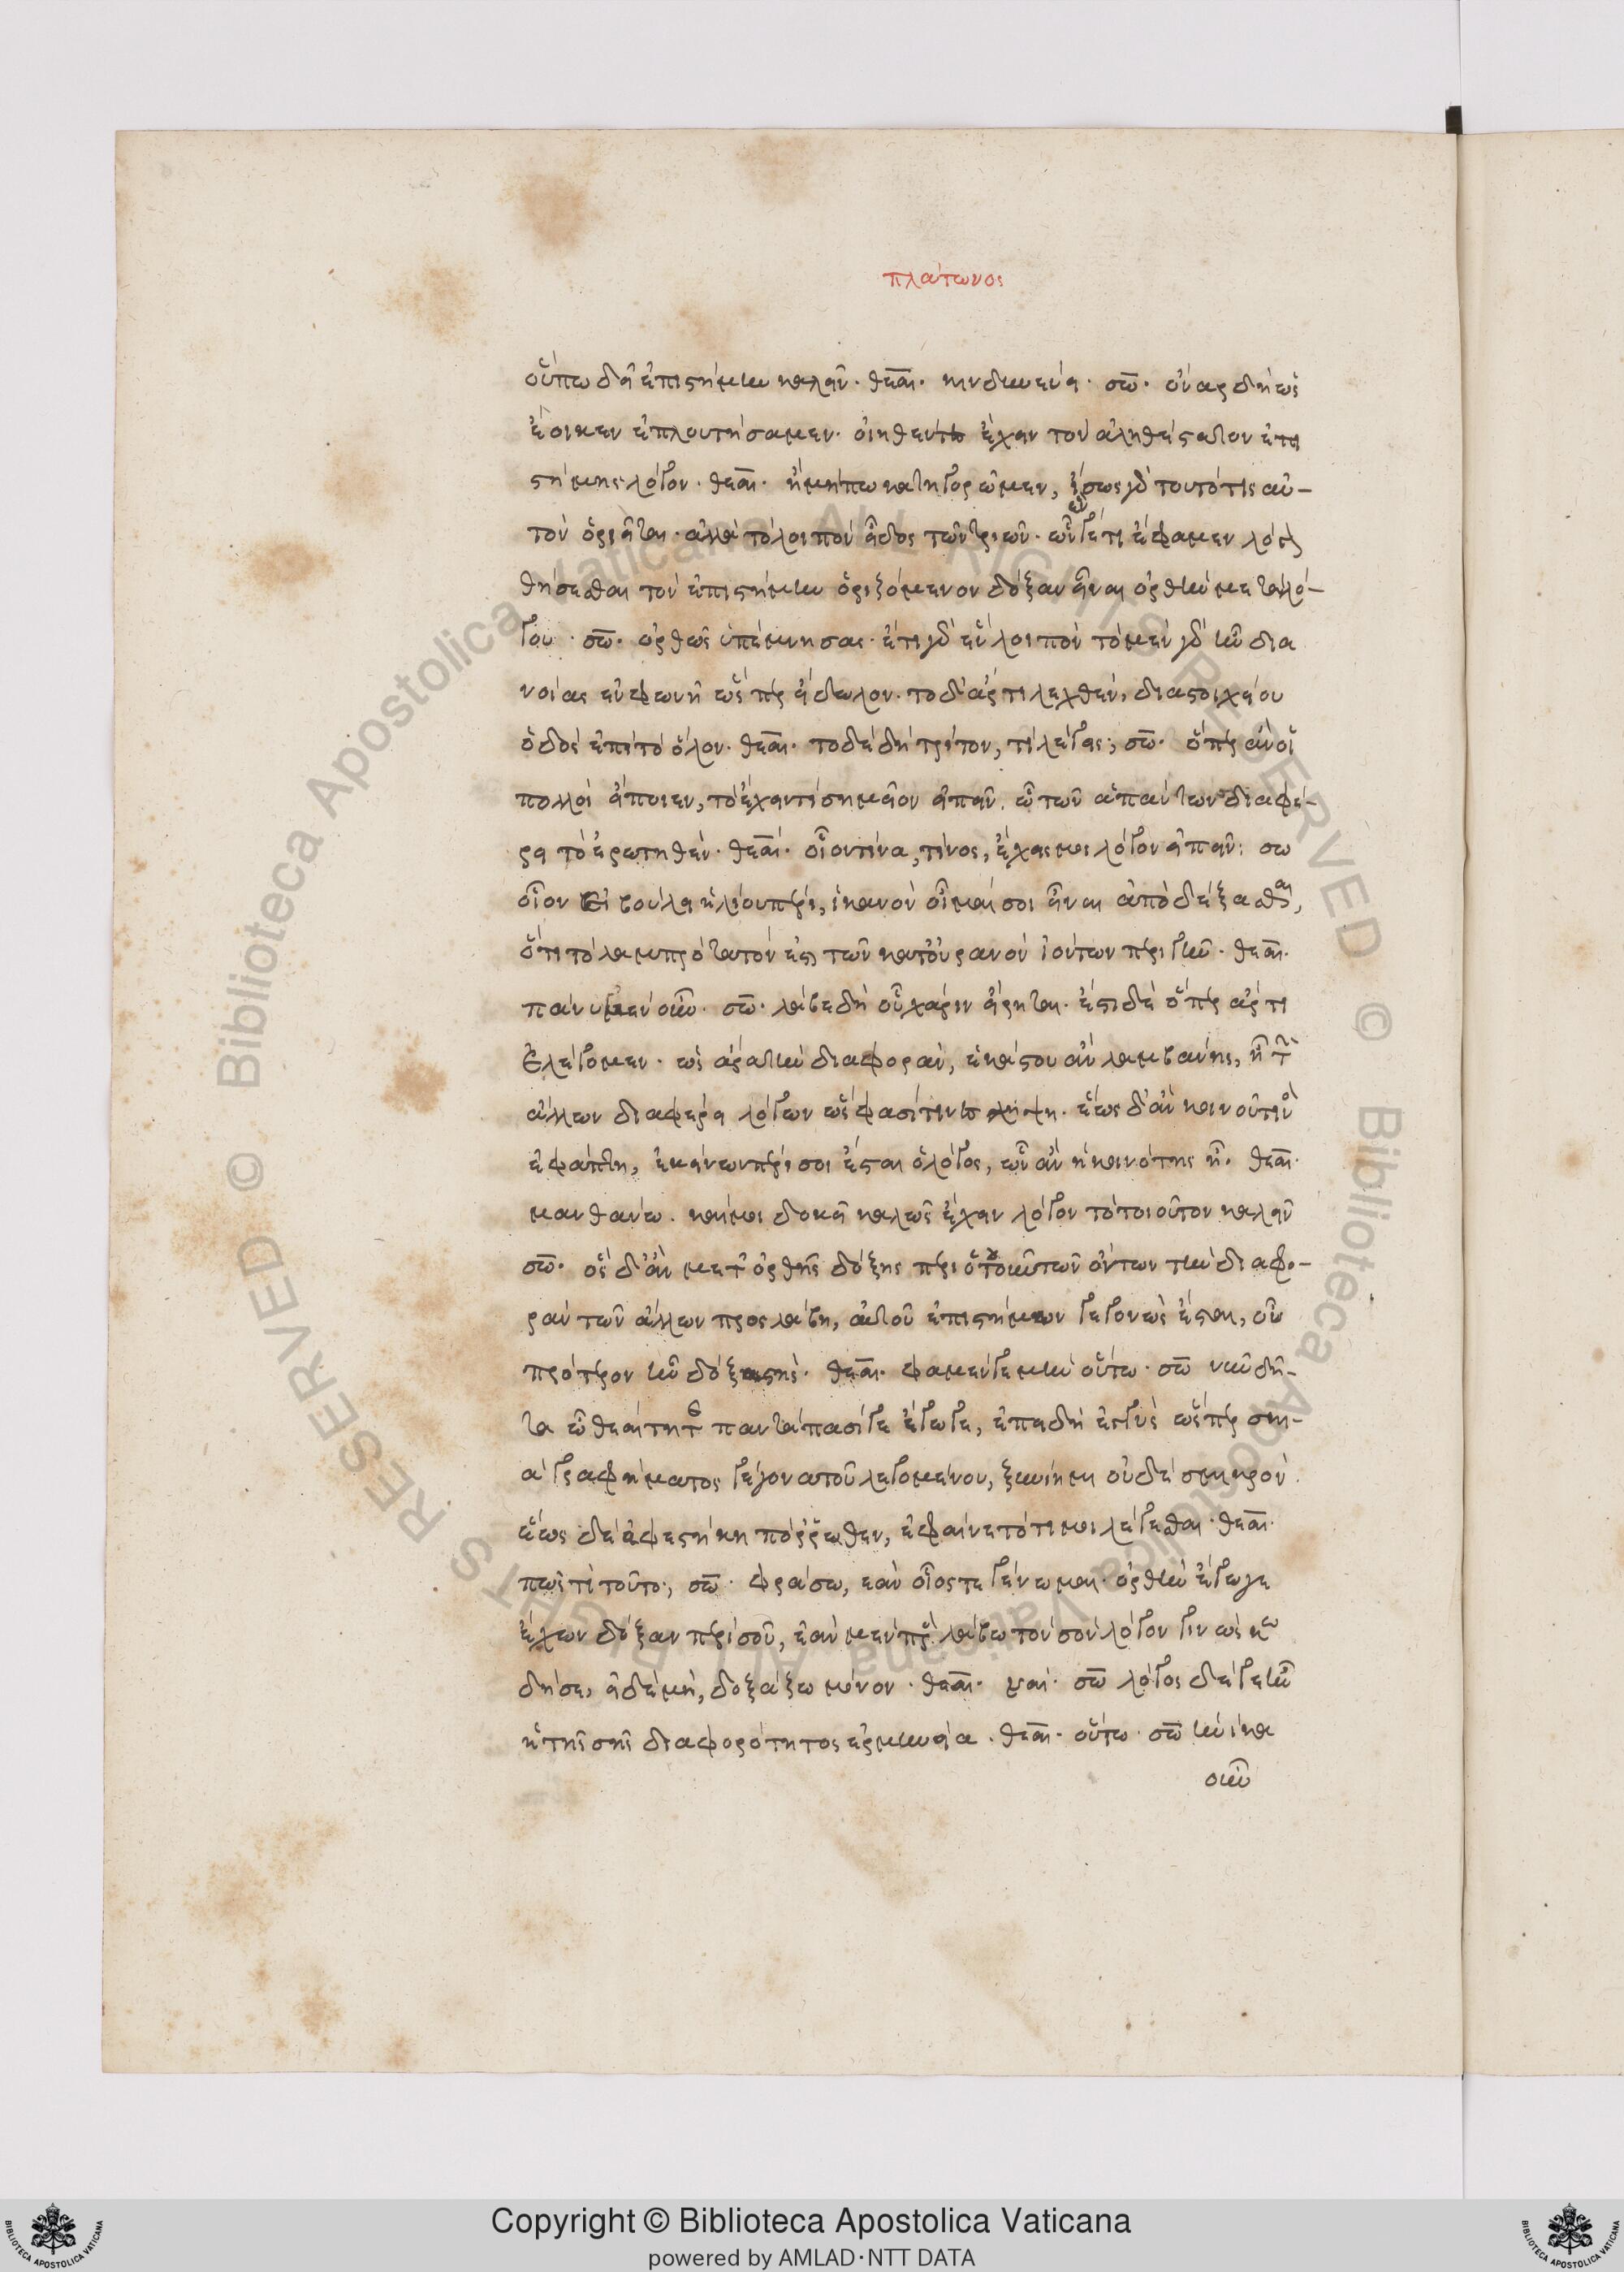 πλάτωνος
οὔπω δεῖ ἐπιστήμην καλεῖν· θεαί· κινδυνεύει· σω· ὄναρ δὴ ὡς
ἔοικεν ἐπλουτήσαμεν· οἰηθέντες ἔχειν τὸν ἀληθέστατον ἐπι
στήμης λόγον· θεαί· ἢ μήπω κατηγορῶμεν, ἴσως γὰρ οὐ τοῦτό τις αὐ-
τὸν ὁριεῖται· ἀλλὰ τὸ λοιπὸν εἶδος τῶν τριῶν· ὧν ἕν γέ τι ἔφαμεν λόγον
θήσεσθαι τὸν ἐπιστήμην ὁριζόμενον δόξαν εἶναι ὀρθὴν μετὰ λό-
γου· σω· ὀρθῶς ὑπέμνησας· ἔτι γὰρ ἓν λοιπὸν τὸ μὲν γὰρ ἦν δια
νοίας ἐν φωνῇ ὥσπερ εἴδωλον· τὸ δ' ἄρτι λεχθὲν, διὰ στοιχείου
ὁδὸς ἐπὶ τὸ ὅλον· θεαί· τὸ δὲ δὴ τρίτον, τί λέγεις; σω· ὅπερ ἂν οἱ
πολλοὶ εἴποιεν, τὸ ἔχειν τι σημεῖον εἰπεῖν ᾧ τῶν ἁπάντων διαφέ-
ρει τὸ ἐρωτηθέν· θεαί· οἷον τίνα, τίνος, ἔχεις μοι λόγον εἰπεῖν; σω
οἷον εἰ βούλει ἡλίου πέρι, ἱκανὸν οἶμαί σοι εἶναι ἀποδείξασθαι,
ὅτι τὸ λαμπρότατόν ἐστι τῶν κατ' οὐρανὸν ἰόντων περὶ γῆν· θεαί·
πάνυ μὲν οὖν· σω· λάβε δὴ οὗ χάριν εἴρηται· ἔστι δὲ ὅπερ ἄρτι
ἐλέγομεν· ὡς ἄρα τὴν διαφορὰν, ἑκάστου ἂν λαμβάνης, ᾗ τῶν
ἄλλων διαφέρει λόγων ὥς φασί τινες λήψῃ· ἕως δ' ἂν κοινοῦ τινος
ἐφάπτῃ, ἐκείνων πέρι σοι ἔσται ὁ λόγος, ὧν ἂν ἡ κοινότης ᾖ· θεαί·
μανθάνω· καί μοι δοκεῖ καλῶς ἔχειν λόγον τὸ τοιοῦτον καλεῖν
σω· ὃς δ' ἂν μετ' ὀρθῆς δόξης περὶ ὁτουοῦν τῶν ὄντων τὴν διαφο-
ρὰν τῶν ἄλλων προσλάβῃ, αὐτοῦ ἐπιστήμων γεγονὼς ἔσται, οὗ
πρότερον ἦν δοξαστής· θεαί· φαμέν γε μὴν οὕτω· σω νῦν δῆ-
τα ὦ θεαίτητε παντάπασί γε ἔγωγε, ἐπειδὴ ἐγγὺς ὥσπερ σκι-
α γραφήματος γέγονα τοῦ λεγομένου, ξυνίημι οὐδὲ σμικρόν
ἕως δὲ ἀφεστήκη πόρρωθεν, ἐφαίνετό τί μοι λέγεσθαι· θεαί·
πῶς τί τοῦτο; σω· φράσω, ἐὰν οἷός τε γένωμαι· ὀρθὴν ἔγωγε
ἔχων δόξαν περὶ σοῦ, ἐὰν μὲν προσλάβω τὸν σὸν λόγον γινώσκω
δή σε, εἰ δὲ μὴ, δοξάζω μόνον· θεαί· ναί· σω λόγος δέ γε ἦν
ἡ τῆς σῆς διαφορότητος ἑρμηνεία· θεαί· οὕτω· σω ἡνίκα
οὖν
Copyright © Biblioteca Apostolica Vaticana
powered by AMLAD·NTT DATA
© Biblioteca Apostolica Vaticana ALL RIGHTS RESERVED
© Biblioteca Apostolica Vaticana ALL RIGHTS RESERVED
BIBLIOTECA APOSTOLICA VATICANA
BIBLIOTECA APOSTOLICA VATICANA